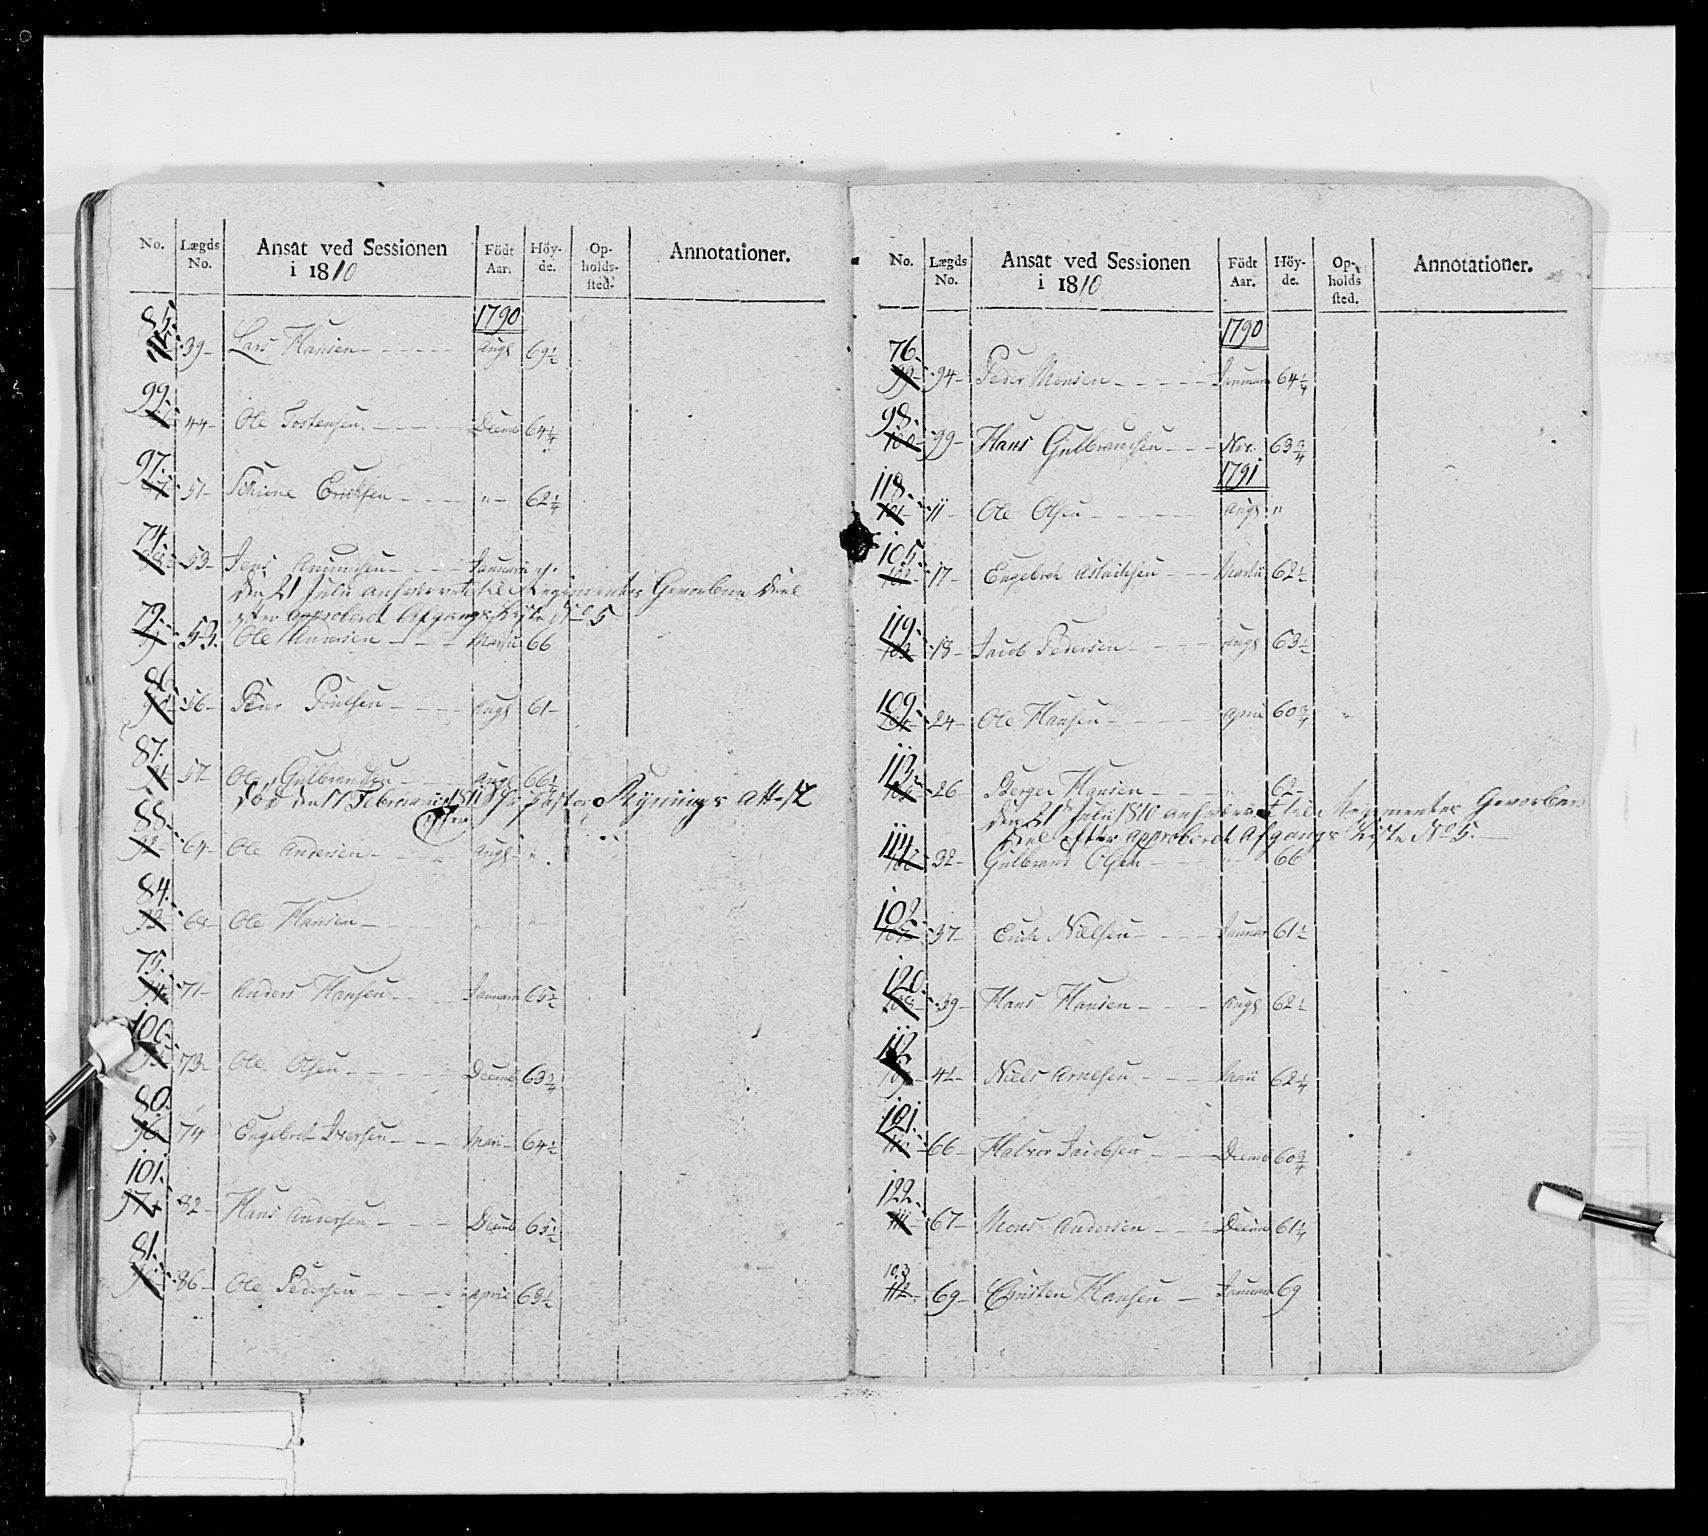 No. Lægds No. Ansat ved Sessionen i 1810 Födt Aar. Höy-de. Op-holds-sted. Annotationer.
1790
85. 39 - Lars Hansen - Augt 69½
99. 44 - Ole Tostensen - Decemb 64¼
97. 51 - Erichsen - " - 62¼
74. 53 - Jens Amundsen - Januari
den 21 Julii anhværvet til Regimentes Gevorbne Deel
efter approberet Afgangs Liste No 5
79. 53. Ole Andersen - Martii 66
86. 56 - Peder Poulsen - Augt 61 -
87. 91 57 Ole Gulbrandsen - Augt 66½
Død den 17 Februarii 1811 efter Pastor Attest
88. 92 64 - Ole Andersen - Augt - "
84. 93 68 - Ole Hansen - " - "
75. 94 71 - Anders Hansen - Januari 65½
100. 95 73 - Ole Olsen - Decemb 63¾
80. 96 74 Engebret Iversen - Mai - 64½
101. 97 82 - Hans Andersen - Decemb 65½
81. 98 86 - Ole Pedersen - April 63½
No. Lægds No. Ansat ved Sessionen i 1810 Födt Aar. Höy-de. Op-holds sted. Annotationer.
1790
76. 99 - 94 - Peder Monsen - Januari 64¼
98. 100 - 99 - Hans Gulbrandsen - Nov. 63¾
1791
118. 101 - 11 - Ole Olsen - Augt "
105. 102 - 17 - Engebret - Martii 62½
119. 103 - 18 - Jacob Pedersen - Augt 63½
109. 104 - 24 - Ole Hansen - April 60¾
113. 105 - 26 - Berger Hansen - " 62 -
den 21 Julii 1810 anhværvet til Regimentes Gevorben
Deel efter approberet Afgangs Liste No 5. -
114. 106 32 - Gulbrand Olsen - " - 66
102. 107 - 37 - Erich Nielsen - Januari 61½
120. 108 - 39 - Hans Hansen - Augt 62½
112. 109 - 41 - Niels Arnesen - Maii 62¼
121. 110 - 66 - Halvor Jacobsen - Decemb 60¾
122. 111 - 67 - Mons Andersen - Decemb 61¼
103 112 - 69 - Christen Hansen - Januari 69